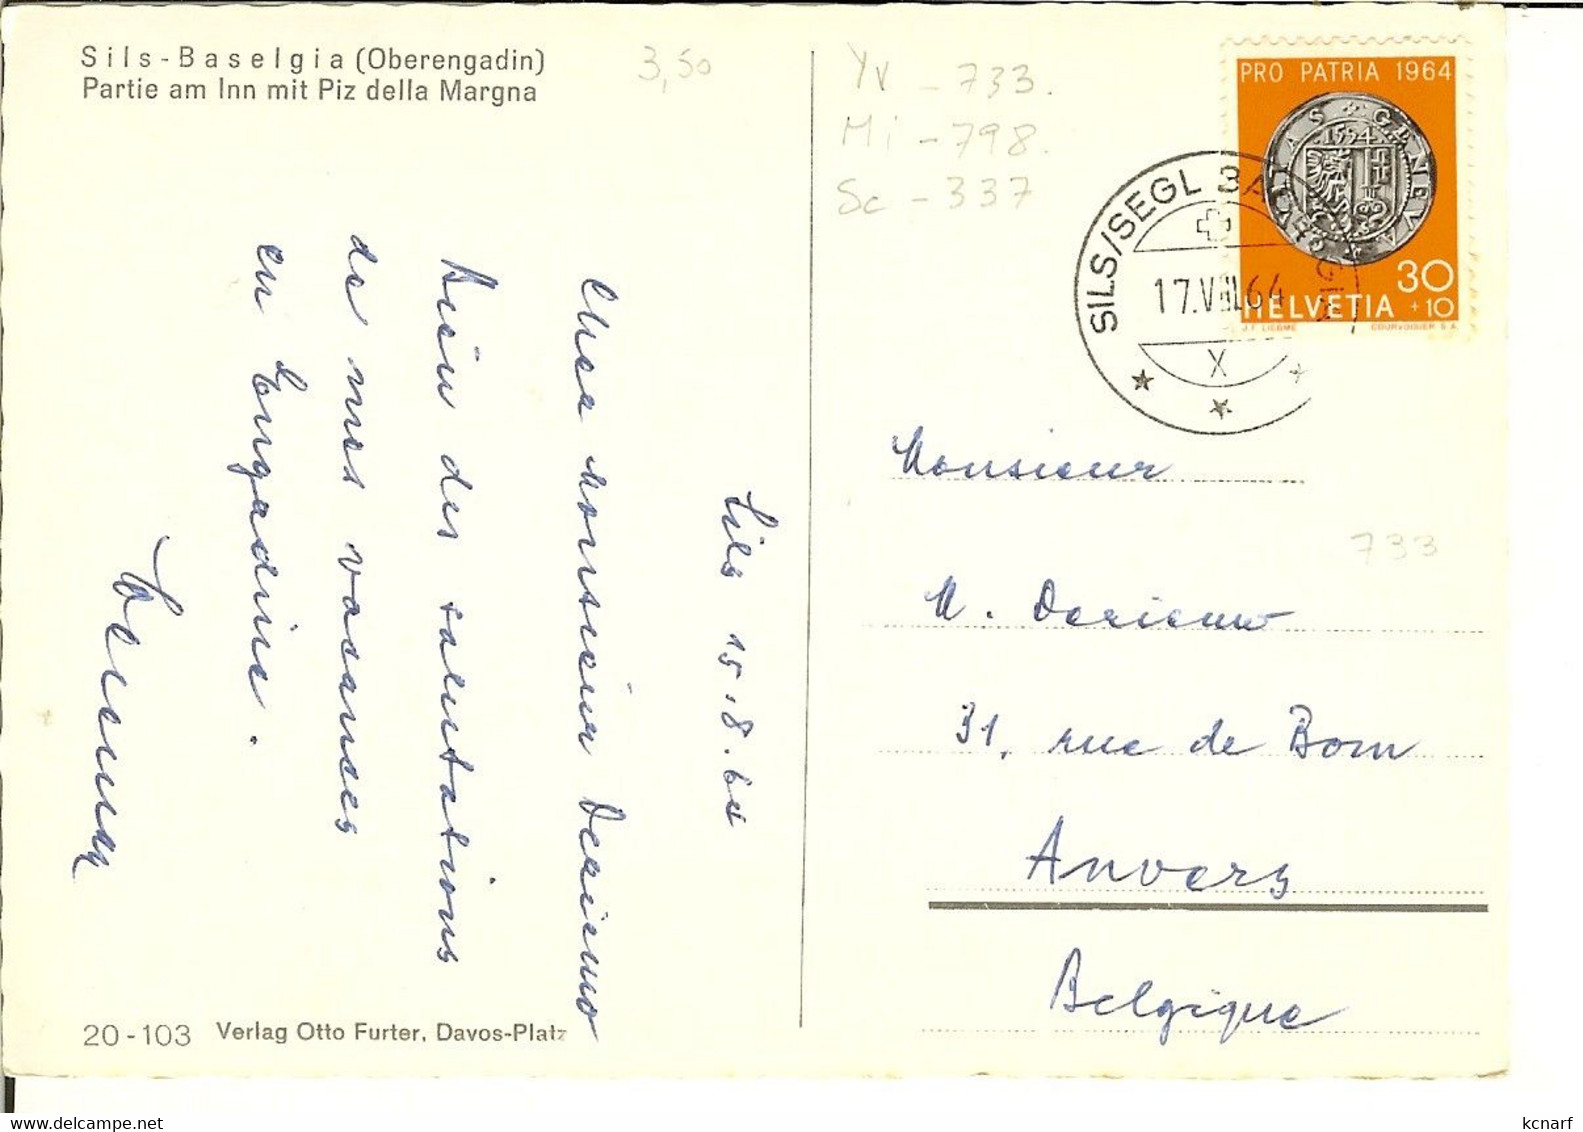 Sils-Baselgia (Oberengadin)
Partie am Inn mit Piz della Margna
3,50
Yv - 733.
Mi - 798.
Sc - 337
PRO PATRIA 1964
GENEVA
1594
30
+10
HELVETIA
J.F. LIEBME
COURVOISIER S A
SILS/SEGL BASELGIA
17.VIII.64
X
Sils 15.8.64
Cher Monsieur
Bien des salutations
de mes vacances
en Engadine.
Monsieur
733
M.
31, rue de Bom
Anvers
Belgique
20-103 Verlag Otto Furter, Davos-Platz
kcnarf